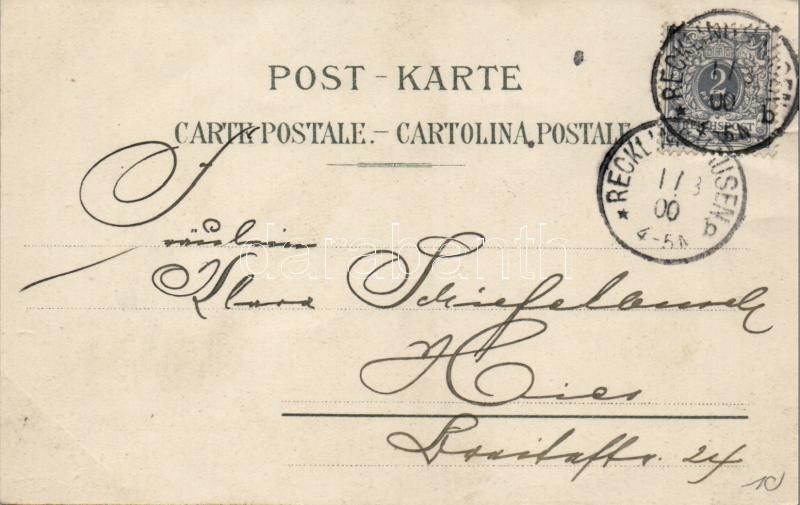 POST - KARTE
CARTE POSTALE. — CARTOLINA POSTALE
2
REICHSPOST
* RECKLINGHAUSEN b
1/3
00
4-5N
* RECKLINGHAUSEN b
1/3
00
4-5N
Fräulein
Klara Schiefelbusch
Hier
Breitestr. 24
10
darabanth